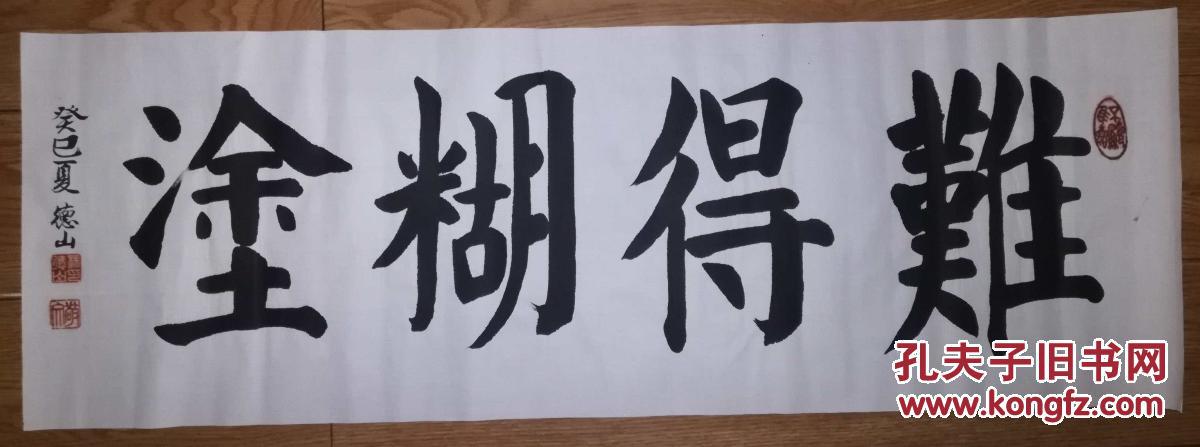 難得糊塗
癸巳夏 德山
孔夫子旧书网
www.kongfz.com